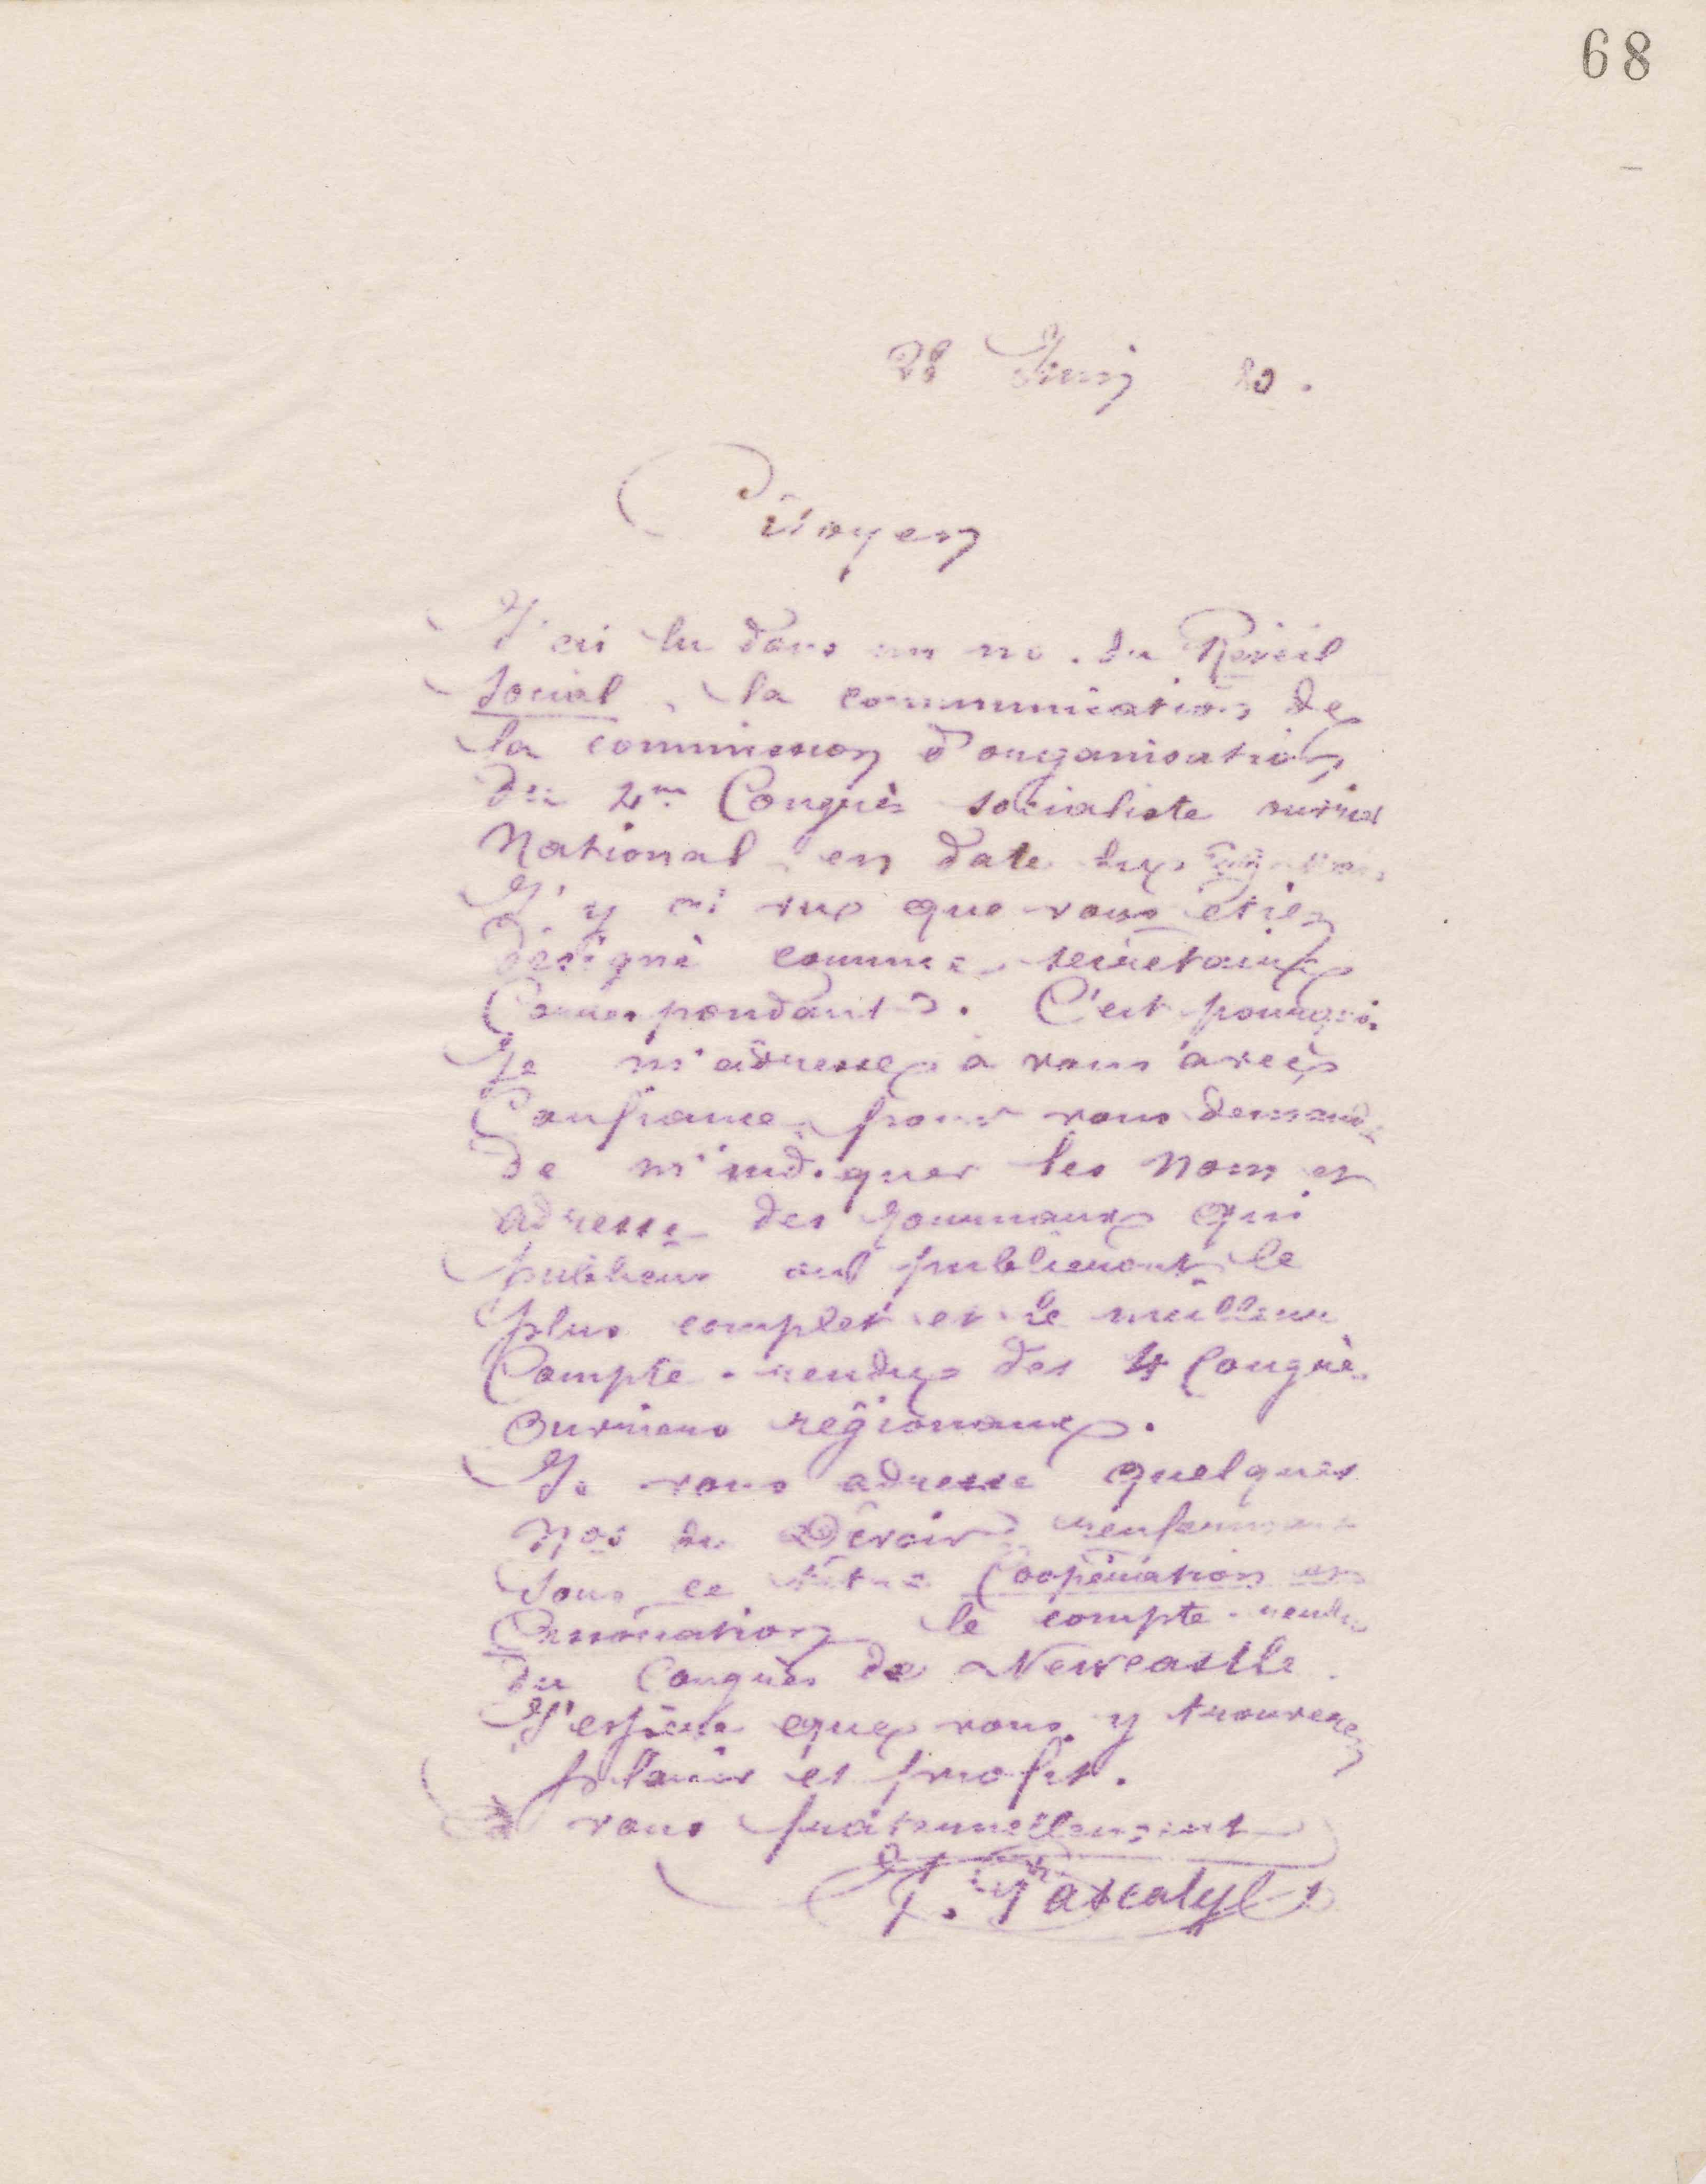 68
28 Juin 80.
Citoyen
J'ai lu dans un no. du Réveil
Social, la communication de
la commission d'organisation
du 4me Congrès socialiste ouvrier
National en date du
J'y ai vu que vous étiez
désigné comme secrétaire
Correspondant. C'est pourquoi
je m'adresse à vous avec
Confiance pour vous demander
de m'indiquer les Noms et
adresse des journaux qui
publient ou publieront le
plus complet et le meilleur
Compte-rendu des 4 Congrès
ouvriers régionaux.
Je vous adresse quelques
Nos du Devoir renfermant
sous ce titre Coopération et
Association le compte-rendu
du Congrès de Newcastle.
J'espère que vous y trouverez
plaisir et profit.
à vous fraternellement
Pascaly